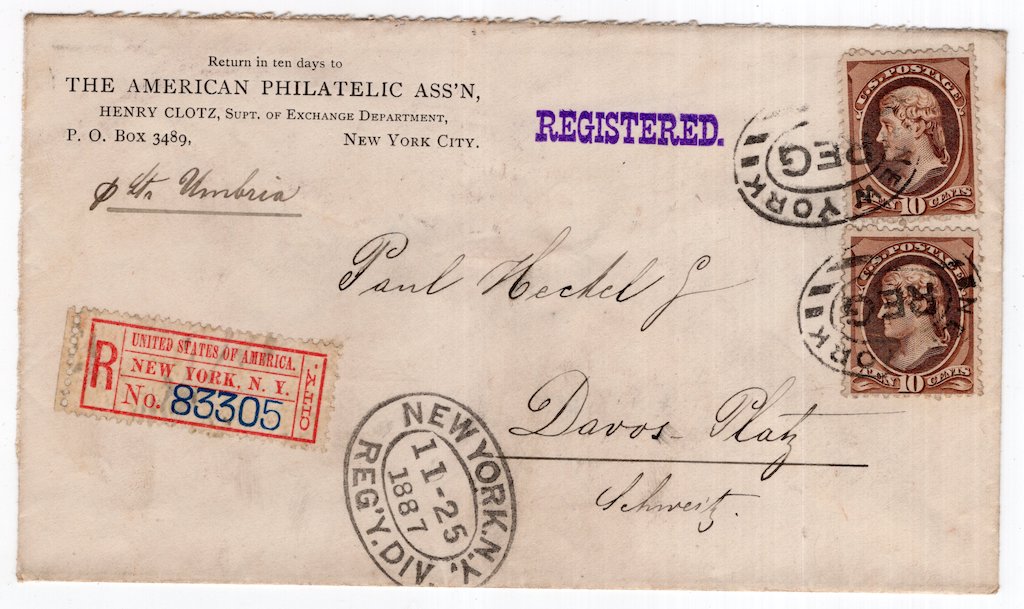 Return in ten days to
THE AMERICAN PHILATELIC ASS'N,
HENRY CLOTZ, SUPT. OF EXCHANGE DEPARTMENT,
P. O. Box 3489, NEW YORK CITY.
Umbria
REGISTERED.
U.S. POSTAGE.
10 CENTS
NEW YORK
REG
U.S. POSTAGE.
10 CENTS
NEW YORK
REG
Paul Heckel
Davos-Platz
Schweitz.
R
UNITED STATES OF AMERICA.
NEW YORK, N. Y.
No. 83305
NEW YORK. N.Y.
11-25
1887
REG'Y. DIV.